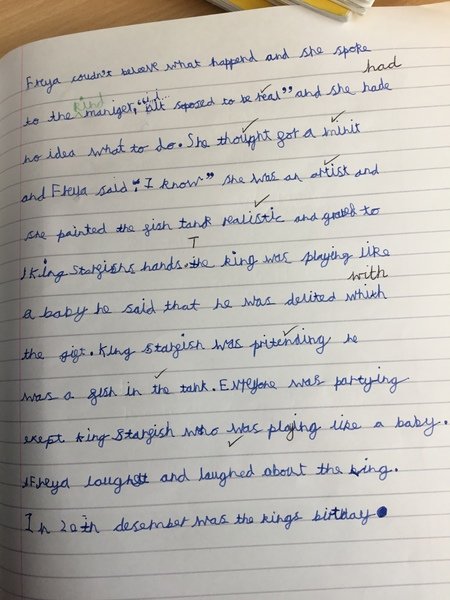 Freya coudn't beleve what happend and she spoke
had
kind
to the maniger, "i..i... but soposed to be real" and she hade
no idea what to do. She thought gor a minit
and Freya said "I know" she was an artist and
she painted the gish tank realistic and gave to
T
King Stargishs hands. the king was playing like
with
a baby he said that he was delited which
the gigt. King stargish was pritending he
was a gish in the tank. Everyone was partying
exept king stargish who was playing like a baby.
Freya laughed and laughed about the king.
In 20th desember was the kings birthday